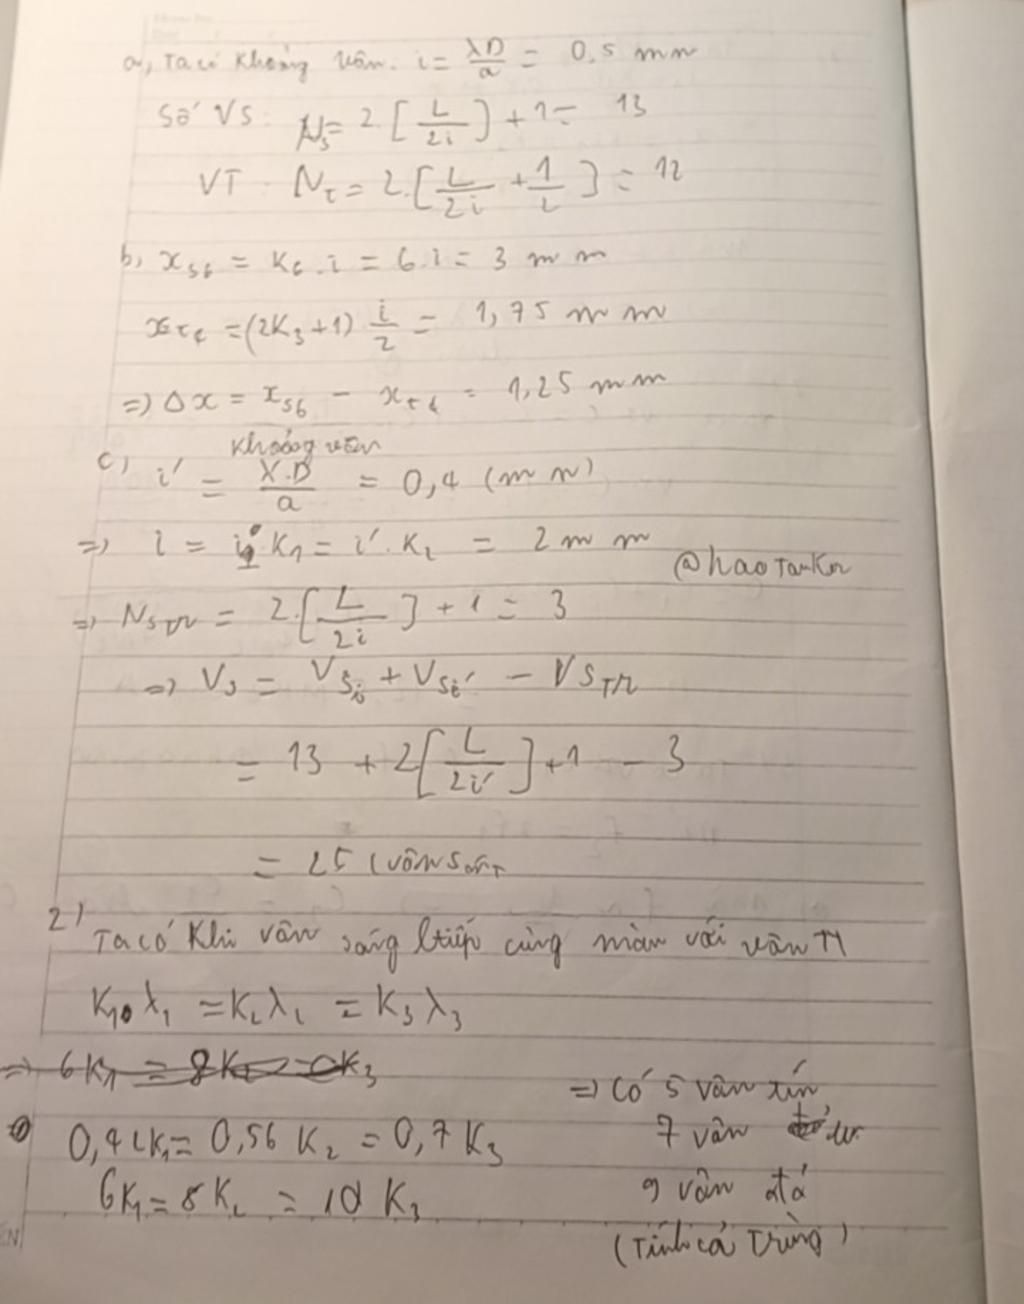 a, Ta có khoảng vân. i = λD/a = 0,5 mm
Số VS: Ns = 2.[L/2i] + 1 = 13
VT: Nt = 2.[L/2i + 1/2] = 12
b, xs6 = K6.i = 6.i = 3 mm
xt4 = (2K3+1) i/2 = 1,75 mm
=> Δx = xs6 - xt4 = 1,25 mm
khoảng vân
c) i' = λ'.D/a = 0,4 (mm)
=> i = i.K1 = i'.K2 = 2 mm
@haoTamKn
=> NsTr = 2.[L/2i] + 1 = 3
=> Vs = Vsi + Vsi' - VSTr
= 13 + 2[L/2i'] + 1 - 3
= 25 (vân sáng
2) Ta có khi vân sáng tiếp cùng màu với vân TT
K1.λ1 = K2λ2 = K3λ3
=> 6K1 = 8K2 = K3
0,42K1 = 0,56 K2 = 0,7 K3
6K1 = 8K2 = 10 K3
=> Có 5 vân tím
7 vân
9 vân đỏ
(Tính cả trùng)